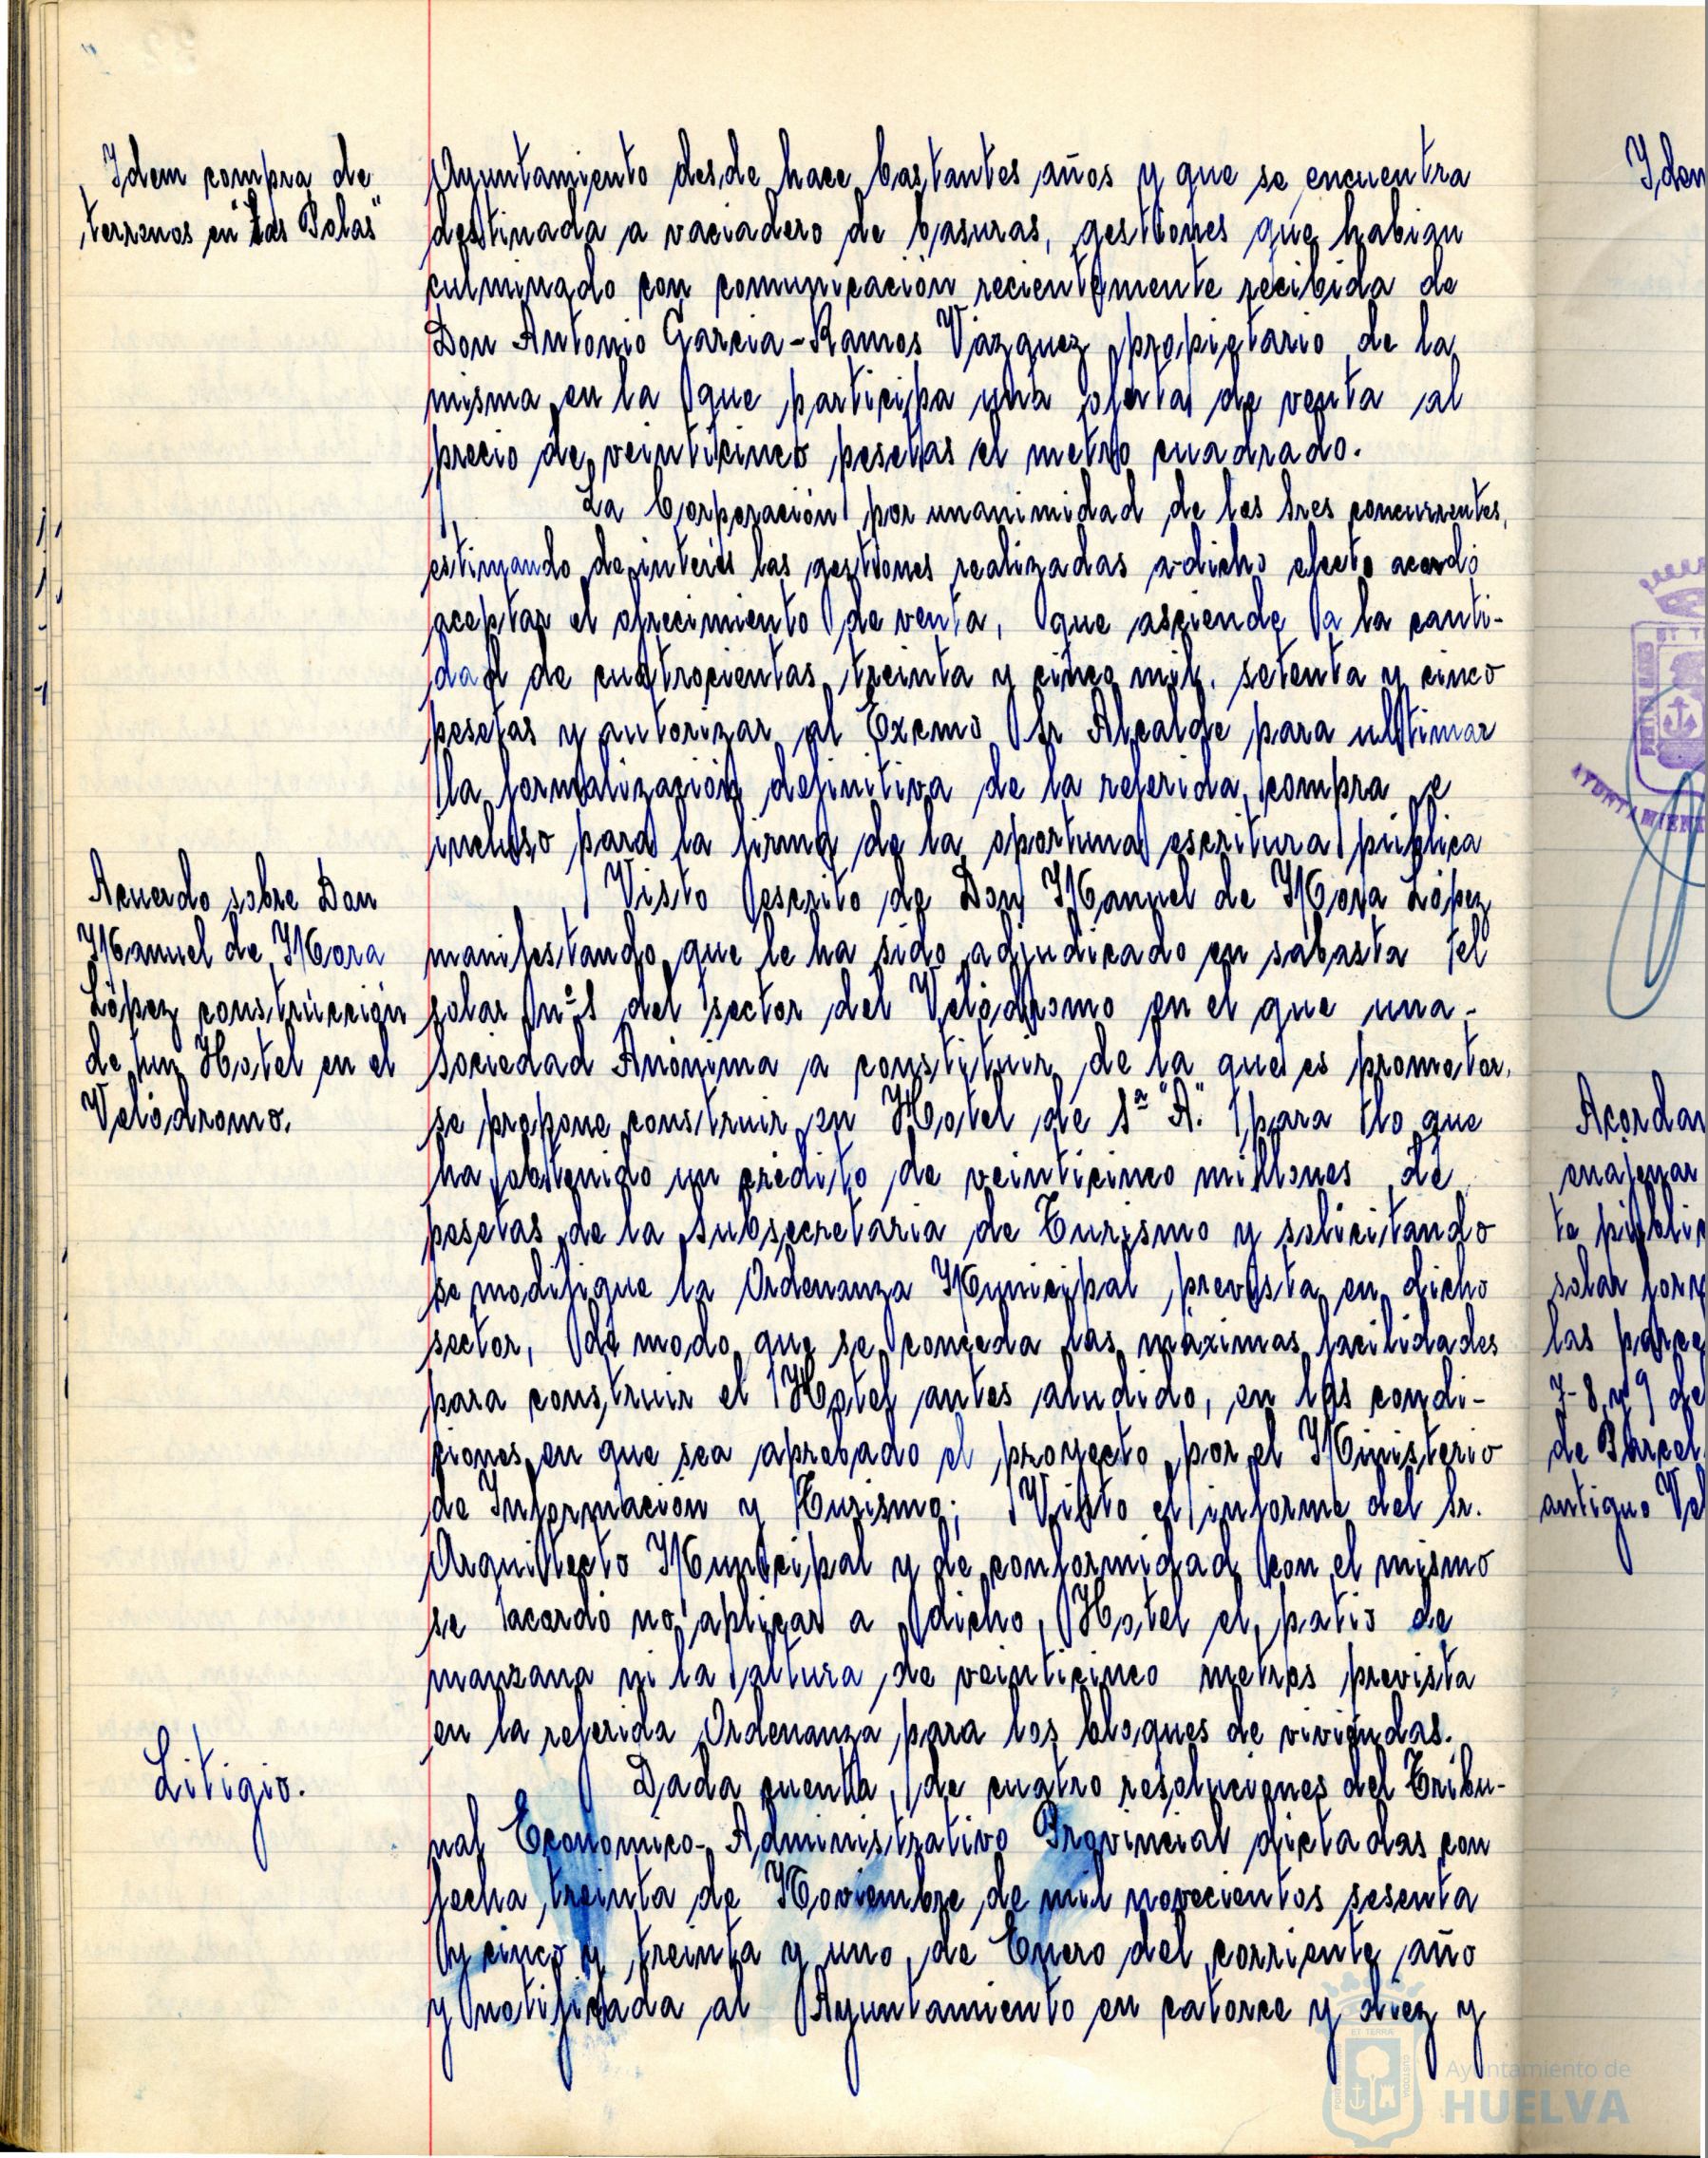 Idem compra de
terrenos en "Las Bolas"
Ayuntamiento desde hace bastantes años y que se encuentra
destinada a vaciadero de basuras, gestiones que habian
culminado con comunicación recientemente recibida de
Don Antonio Garcia-Ramos Vazquez propietario de la
misma en la que participa una oferta de venta al
precio de veinticinco pesetas el metro cuadrado.
La Corporación por unanimidad de los Sres concurrentes,
estimando de interés las gestiones realizadas a dicho efecto acordó
aceptar el ofrecimiento de venta, que asciende a la canti-
dad de cuatrocientas treinta y cinco mil, setenta y cinco
pesetas y autorizar al Excmo Sr Alcalde para ultimar
la formalización definitiva de la referida compra e
incluso para la firma de la oportuna escritura publica
Acuerdo sobre Don
Manuel de Mora
López construcción
de un Hotel en el
Velódromo.
Visto escrito de Don Manuel de Mora López
manifestando que le ha sido adjudicado en subasta el
solar nº 1 del sector del Velódromo en el que una
Sociedad Anónima a constituir de la que es promotor,
se propone construir un Hotel de 1ª "A." para lo que
ha obtenido un crédito de veinticinco millones de
pesetas de la Subsecretaria de Turismo y solicitando
se modifique la Ordenanza Municipal prevista en dicho
sector, de modo que se conceda las máximas facilidades
para construir el Hotel antes aludido, en las condi-
ciones en que sea aprobado el proyecto por el Ministerio
de Información y Turismo; Visto el informe del Sr.
Arquitecto Municipal y de conformidad con el mismo
se acordó no aplicar a dicho Hotel el patio de
manzana ni la altura de veinticinco metros prevista
en la referida Ordenanza para los bloques de viviendas.
Litigio.
Dada cuenta, de cuatro resoluciones del Tribu-
nal Economico-Administrativo Provincial dictadas con
fecha treinta de Noviembre de mil novecientos sesenta
y cinco y treinta y uno de Enero del corriente año
y notificada al Ayuntamiento en catorce y diez y
Iden
Acordar
enajenar
te públi
solar form
las parce
7-8 y 9 de
de Parcel
antiguo Vel
AYUNTAMIEN
Ayuntamiento de
HUELVA